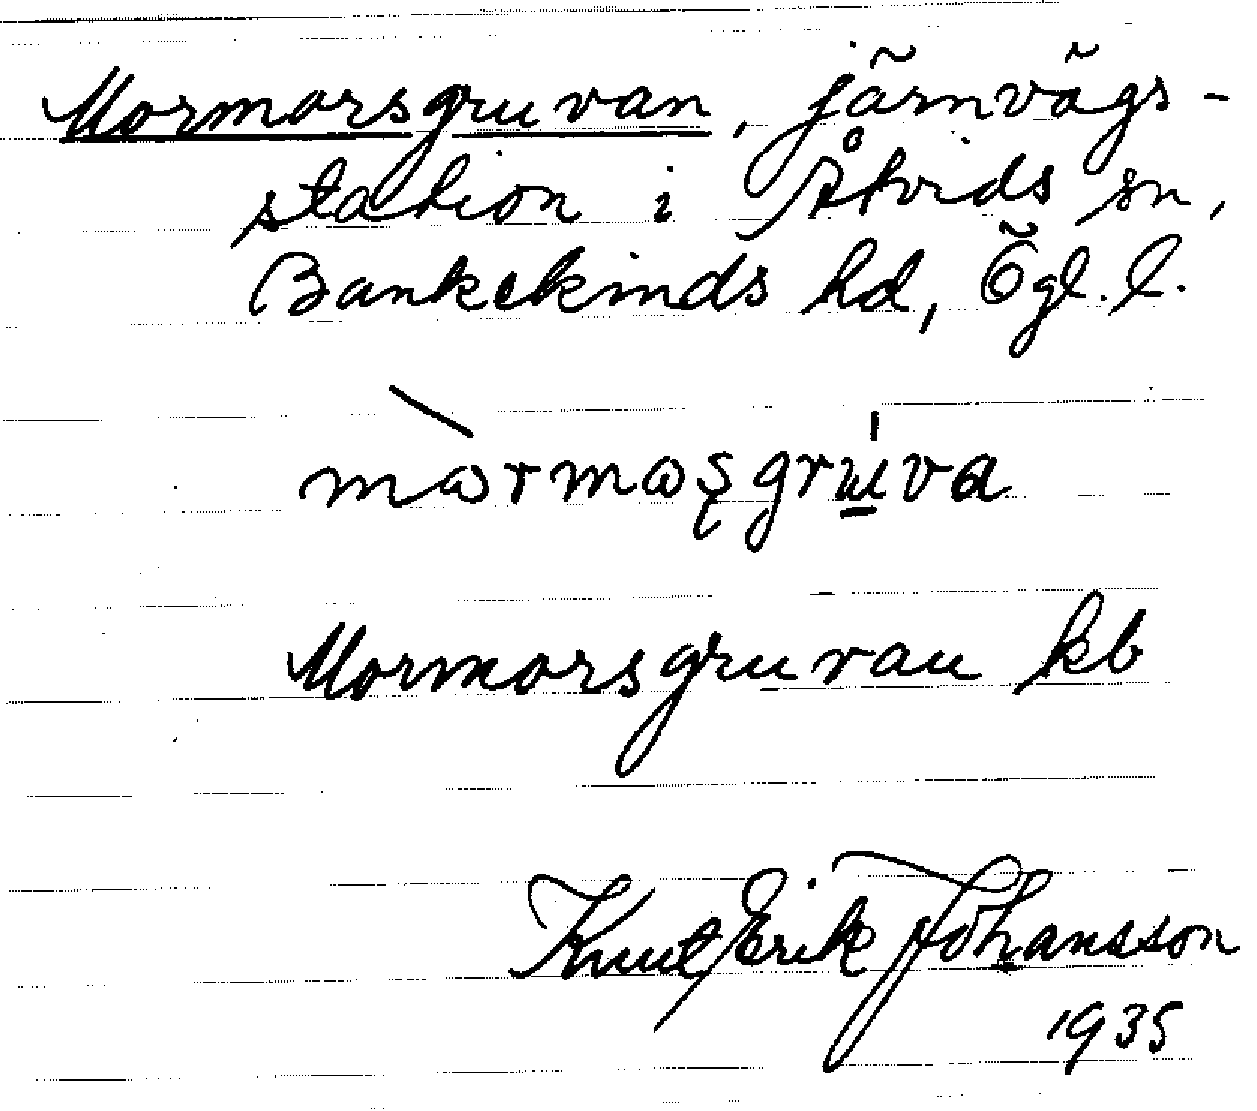 Mormorsgruvan, järnvägs-
station i Åtvids sn,
Bankekinds hd, Ögl. l.
mωrmωʂgru̲va
Mormorsgruvan kb
Knut Erik Johansson
1935